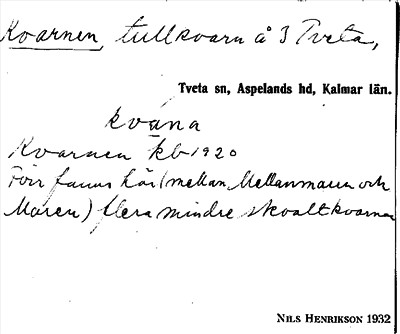 Kvarnen, tullkvarn å 3 Tveta,
Tveta sn, Aspelands hd, Kalmar län.
kväna
Kvarnen kb 1920
Förr fanns här (mellan Mellanmaren och
Maren) flera mindre skvaltkvarnar
NILS HENRIKSON 1932